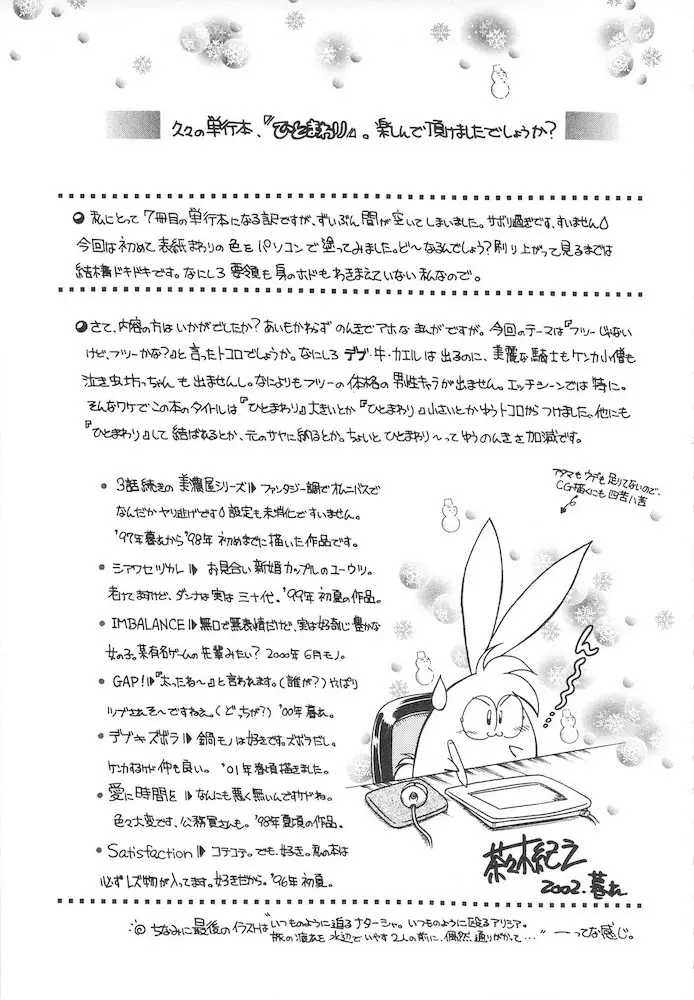 久々の単行本、『ひとまわり』。楽しんで頂けましたでしょうか?
私にとって7冊目の単行本になる訳ですが、ずいぶん間が空いてしまいました。サボリ過ぎです、すいません
今回は初めて表紙まわりの色をパソコンで塗ってみました。ど〜なるんでしょう?刷り上がって見るまでは
結構ドキドキです。なにしろ要領も身のホドもわきまえていない私なので。
さて、内容の方はいかがでしたか?あいもかわらずのんきでアホなまんがですが。今回のテーマは『フリーじゃない
けど、フリーかな?』と言ったトコロでしょうか。なにしろデブ・牛・カエルは出るのに、美麗な騎士もケンカ小僧も
泣き虫坊っちゃんも出ませんし。なによりもフリーの体格の男性キャラが出ません。エッチシーンでは特に。
そんなワケでこの本のタイトルは『ひとまわり』大きいとか『ひとまわり』小さいとかゆうトコロからつけました。他にも
『ひとまわり』して結ばれるとか、元のサヤに納るとか。ちょいとひとまわり〜ってゆうのんきさ加減です。
3話続きの美濃屋シリーズ ファンタジー調でオムニバスで
なんだかヤリ逃げです 設定も未消化ですいません。
'97年暮れから'98年初めまでに描いた作品です。
シアワセヅカレ お見合い新婚カップルのユーウツ。
老けてますけど、ダンナは実は三十代。'99年初夏の作品。
IMBALANCE 無口で無表情だけど、実は好奇心豊かな
女の子。某有名ゲームの先輩みたい?2000年6月モノ。
GAP! 『太ったね〜』と言われます。(誰が?)やっぱり
ツブされそ〜ですねえ。(どっちが?)'00年暮れ。
デブキズボラ 鍋モノは好きです。ズボラだし。
ケンカするけど仲も良い。'01年春頃描きました。
愛に時間を なんにも悪く無いんですけどね。
色々大変です、公務員さんも。'98年夏頃の作品。
Satisfaction コテコテ。でも、好き。私の本は
必ずレズ物が入ってます。好きだから。'96年初夏。
アタマもウデも足りてないので、
CG描くにも四苦八苦
ん〜〜
茶々木紀之
2002.暮れ
ちなみに最後のイラストは"いつものように迫るナターシャ。いつものように殴るアリシア。
旅の疲れを水辺でいやす2人の前に、偶然通りがかって…" ーってな感じ。